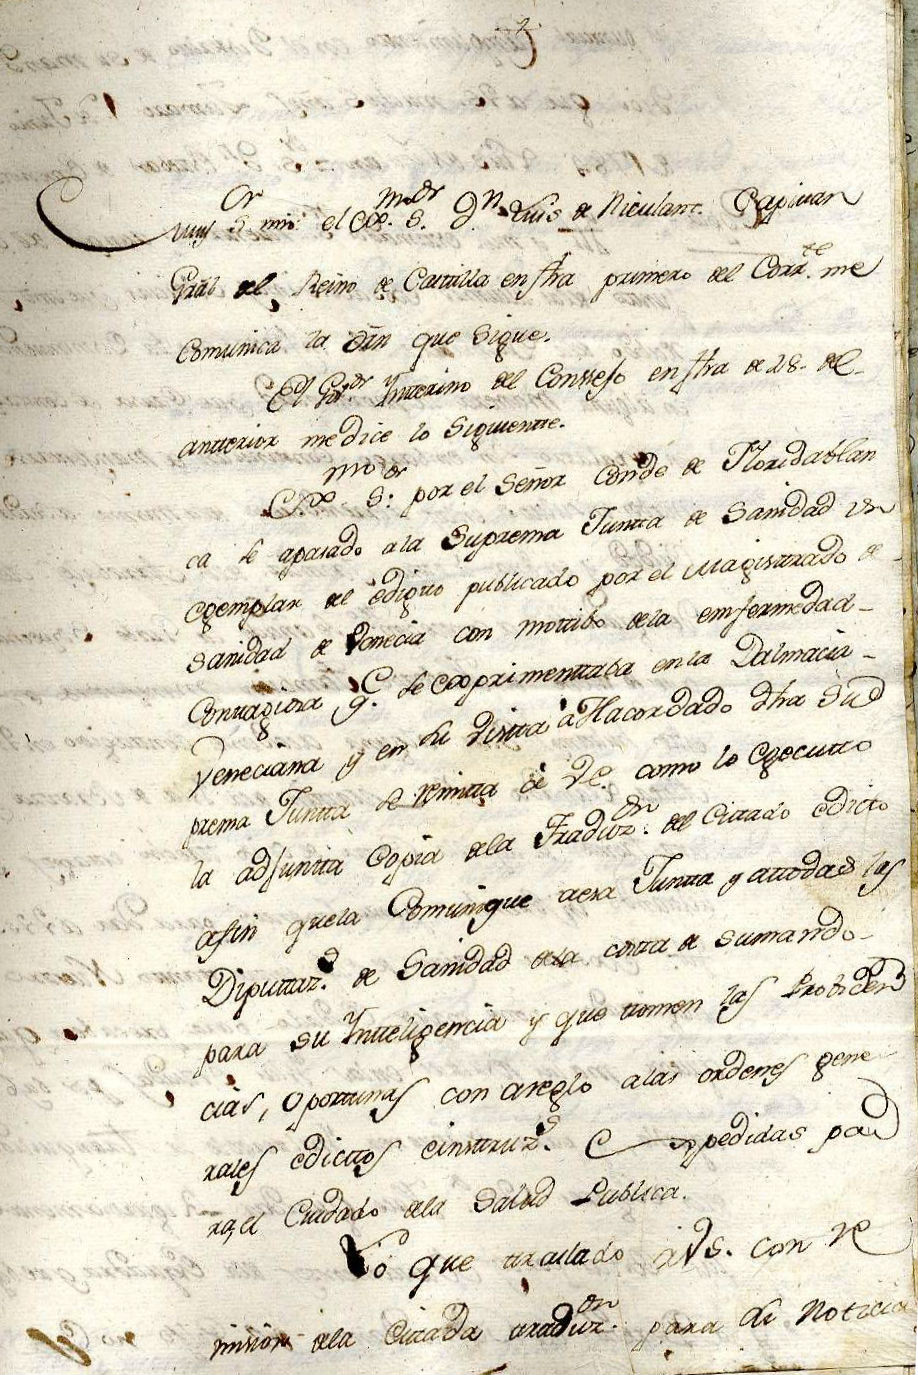 Muy Sor mio: el Exmo. Sor. Dn. Luis de Niculant. Capitan
Gral del Reino de Castilla en ftra primero del Corrte. me
Comunica la orn que sigue.
El Gor. Ynterino del Conssejo en ftra de 28. del
antterior me dice lo Siguientte.
Exmo Sor: por el Señor Conde de Floridablan
ca se a pasado a la Suprema Juntta de Sanidad un
egemplar del edigto publicado por el Magistrado de
Sanidad de Venecia con mottibo de la emfermedad
Conttagiosa q. se exprimenttaba en la Dalmacia
Veneciana y en su vistta a Hacordado dha Su
prema Juntta se remitta a Ve. como lo egecutto
la adjuntta Copia de la Traduzon. del Cittado edicto
a fin que la Comunique a esa Juntta y a ttodas las
Diputtazd. de Sanidad de la costta de su mando
para su Ynttelixencia y que ttomen las Probiden
cias, oportunas con areglo a las ordenes gene
rales edicttos e insttruzs. Expedidas pa
ra, el Cuidado de la Salud Publica.
Lo que ttraslado a VS. con re
mision de la Cittada traduzon. para su Noticia